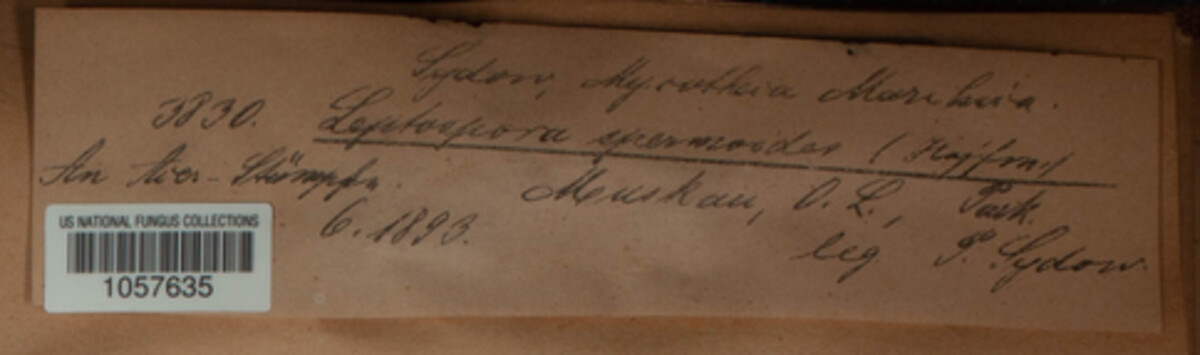 Sydow, Mycotheca Marchica.
3830. Leptospora spermoides (Hoffm.)
An Acer-Stümpfen. Muskau, O. L., Park.
6. 1893. leg P. Sydow.
US NATIONAL FUNGUS COLLECTIONS
1057635